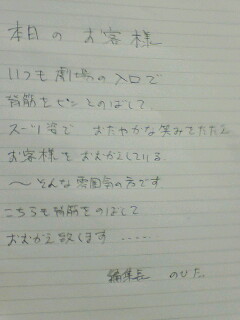 本日の お客様
いつも劇場の入口で
背筋をピンとのばして
スーツ姿で おだやかな笑みでたたえ
お客様をおむかえしている
〜そんな雰囲気の方です
こちらも背筋をのばして
おむかえ致します ‥‥‥
編集長 のびた